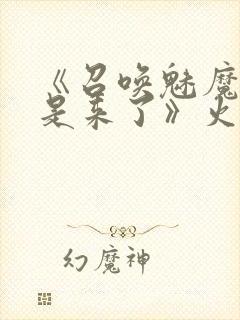 《召唤魅魔
是来了》火
幻魔神